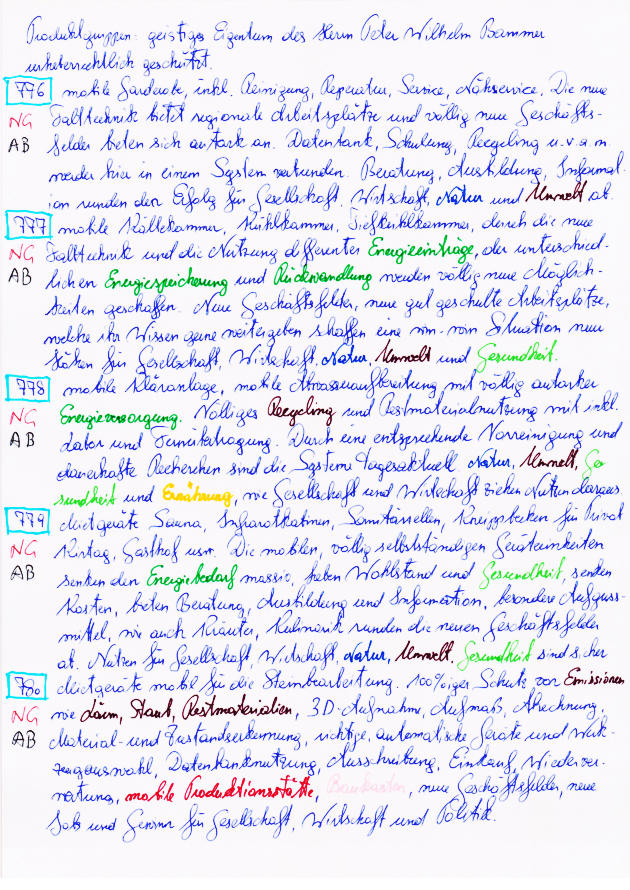 Produktgruppen: geistiges Eigentum des Herrn Peter Wilhelm Bammer
urheberrechtlich geschützt.
776 mobile Garderobe, inkl. Reinigung, Reperatur, Service, Nähservice. Die neue
NG Falttechnik bietet regionale Arbeitsplätze und völlig neue Geschäfts-
AB felder bieten sich autark an. Datenbank, Schulung, Recycling u.v.a.m.
werden hier in einem System verbunden. Beratung, Ausbildung, Informat-
ion runden den Erfolg für Gesellschaft, Wirtschaft, Natur und Umwelt ab.
777 mobile Kältekammer, Kühlkammer, Tiefkühlkammer, durch die neue
NG Falttechnik und die Nutzung differenter Energieeinträge, der unterschied-
AB lichen Energiespeicherung und Rückwandlung werden völlig neue Möglich-
keiten geschaffen. Neue Geschäftsfelder, neue gut geschulte Arbeitsplätze,
welche ihr Wissen gerne weitergeben schaffen eine win-win Situation neu
für Gesellschaft, Wirtschaft, Natur, Umwelt und Gesundheit.
778 mobile Kläranlage, mobile Abwasseraufbereitung mit völlig autarker
NG Energieversorgung. Völliges Recycling und Restmaterialnutzung mit inkl.
AB Labor und Fernübertragung. Durch eine entsprechende Vorreinigung und
dauerhafte Recherchen sind die Systeme tagesaktuell Natur, Umwelt, Ge-
sundheit und Ernährung, wie Gesellschaft und Wirtschaft ziehen Nutzen daraus
779 Mietgeräte Sauna, Infrarotkabinen, Sanitärzellen, Kneippbecken für Privat
NG Kirtag, Gasthof usw. Die mobilen, völlig selbstständigen Geräteeinheiten
AB senken den Energiebedarf massiv, heben Wohlstand und Gesundheit, senken
Kosten, bieten Beratung, Ausbildung und Information, besondere Aufguss-
mittel, wie auch Kräuter, Kulinarik runden die neuen Geschäftsfelder
ab. Nutzen für Gesellschaft, Wirtschaft, Natur, Umwelt, Gesundheit sind sicher
780 Mietgeräte mobil für die Steinbearbeitung. 100%iger Schutz vor Emissionen
NG wie Lärm, Staub, Restmaterialien, 3D-Aufnahme, Aufmaß, Abrechnung,
AB Material- und Zustandserkennung, richtige, automatische Geräte und Werk-
zeugauswahl, Datenbanknutzung, Ausschreibung, Einkauf, Wiederver-
wertung, mobile Produktionsstätte, Baukasten, neue Geschäftsfelder, neue
Jobs und Gewinn für Gesellschaft, Wirtschaft und Politik.